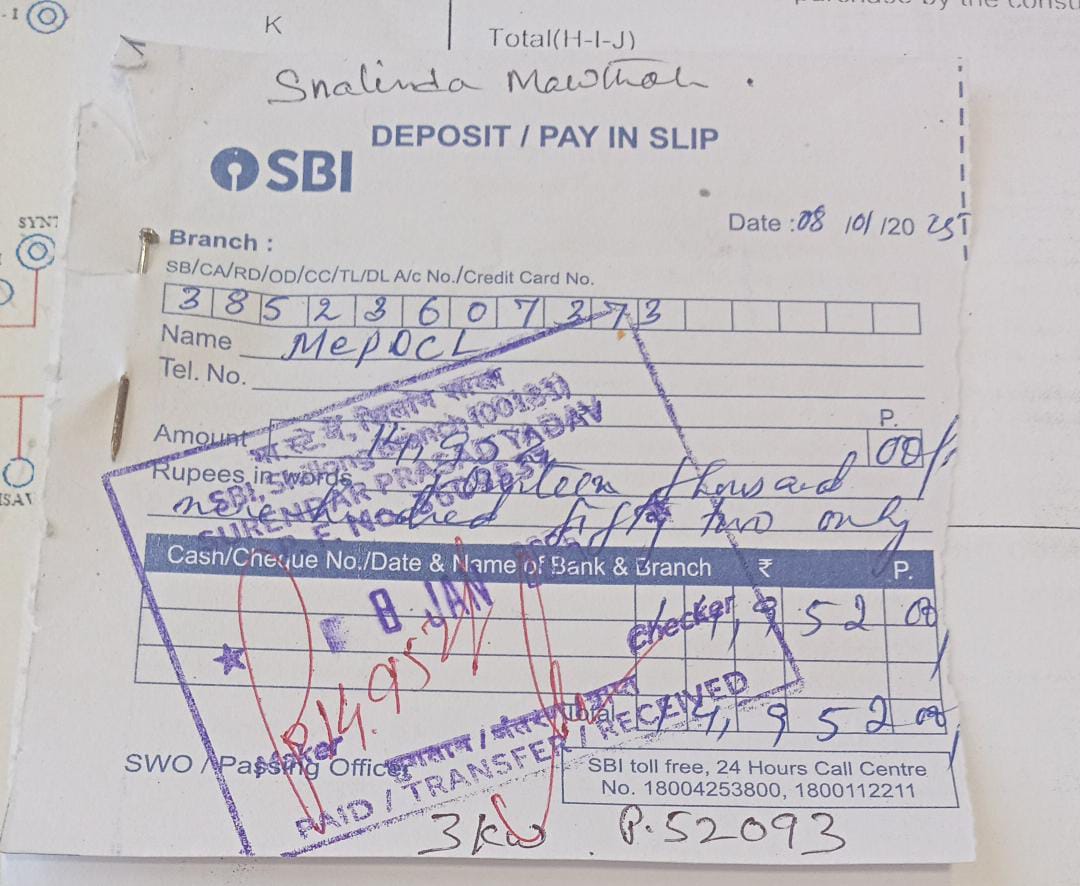 - I
K
Total(H-I-J)
Snalinda Mawthoh .
DEPOSIT / PAY IN SLIP
SBI
Date : 08 /01/2025
SYNT
Branch :
SB/CA/RD/OD/CC/TL/DL A/c No./Credit Card No.
38523607373
Name MePDCL
Tel. No.
P.
Amount 14,952 00/-
Rupees in words Fourteen thousand
nine hundred fifty two only
SBI, Shillong Branch (00181)
SURENDAR PRASAD YADAV
Cash/Cheque No./Date & Name of Bank & Branch ₹ P.
8 JAN
14,952 00
Checker
14,952/-
Total 14,952 00
भुगतान / अंतरण
PAID / TRANSFER / RECEIVED
Maker
SWO / Passing Officer
SBI toll free, 24 Hours Call Centre
No. 18004253800, 1800112211
3kw P.52093